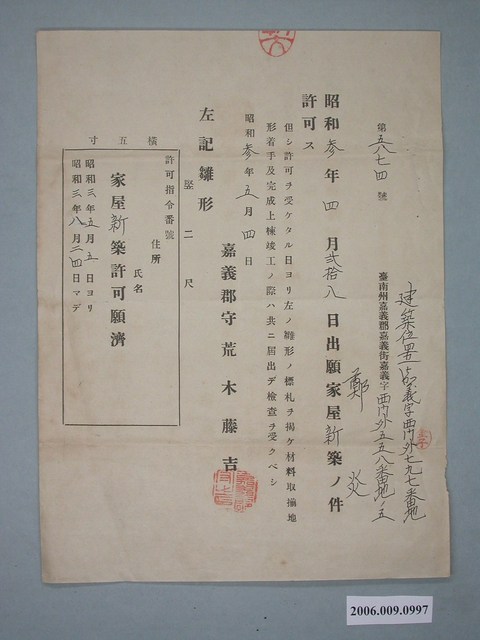 第五八七四號
建築位置嘉義字西門外七九七番地
臺南州嘉義郡嘉義街嘉義字西門外五五八番地ノ五
鄭 炎
昭和參年四月貳拾八日出願家屋新築ノ件
許可ス
但シ許可ヲ受ケタル日ヨリ左ノ雛形ノ標札ヲ揭ケ材料取揃地
形着手及完成上棟竣工ノ際ハ共ニ届出デ檢查ヲ受クベシ
昭和參年五月四日
嘉義郡守荒木藤吉
左記雛形
竪二尺
橫五寸
許可指令番號
住所
氏名
家屋新築許可願濟
昭和三年五月五日ヨリ
昭和三年八月二四日マデ
2006.009.0997